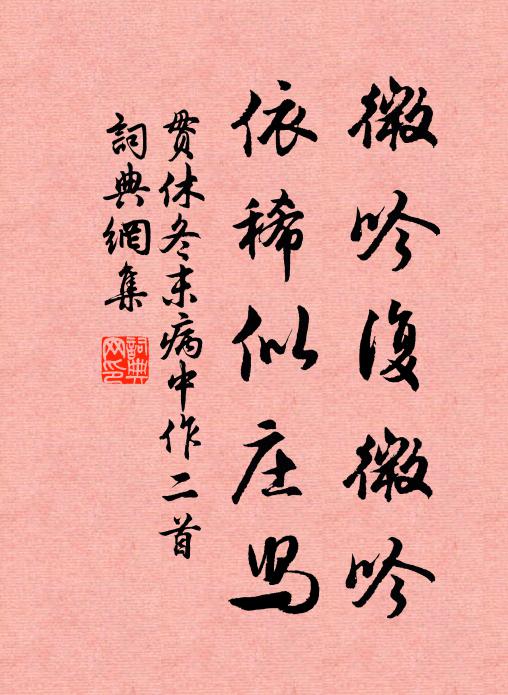 微吟復微吟
依稀似庄舄
貫休冬末病中作二首
詞典網集
詞典
网印